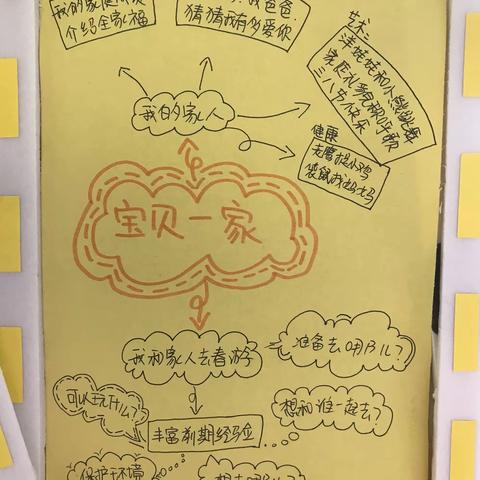 介绍全家福
我爸爸
猜猜我有多爱你
艺术:
洋娃娃和小熊跳舞
三八节快乐
我的家人
健康
老鹰捉小鸡
袋鼠找妈妈
宝贝一家
我和家人去春游
准备去哪儿?
可以玩什么?
丰富前期经验
想和谁一起去?
保护环境
想去哪儿?